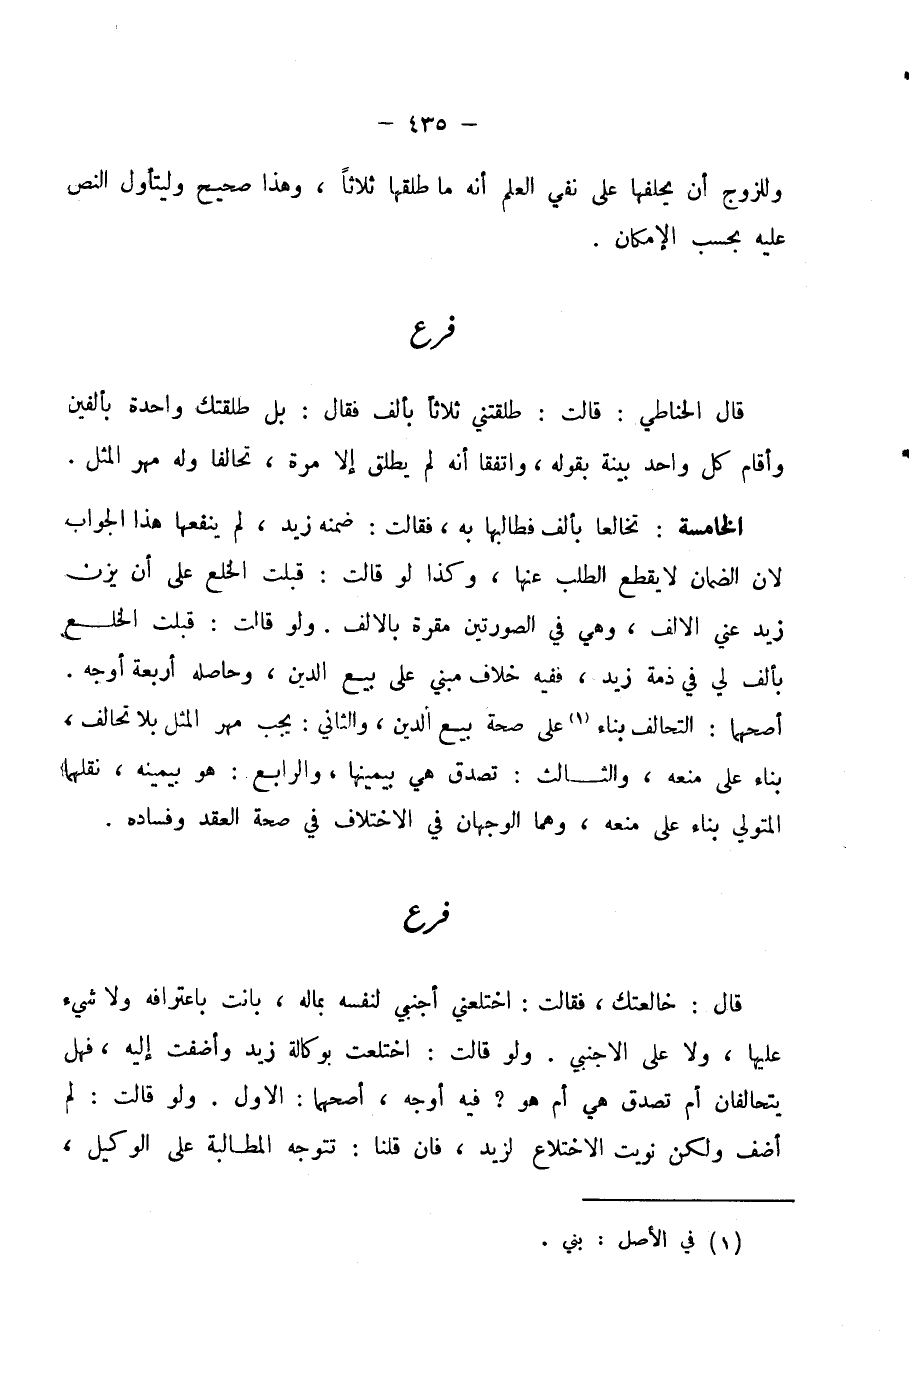 — ٤٣٥ —
وللزوج أن يحلفها على نفي العلم أنه ما طلقها ثلاثاً ، وهذا صحيح وليتأول النص
عليه بحسب الإمكان .
فرع
قال الحناطي : قالت : طلقتني ثلاثاً بألف فقال : بل طلقتك واحدة بألفين
وأقام كل واحد بينة بقوله ، واتفقا أنه لم يطلق إلا مرة ، تحالفا وله مهر المثل .
الخامسة : تخالعا بألف فطالبها به ، فقالت : ضمنه زيد ، لم ينفعها هذا الجواب
لان الضمان لايقطع الطلب عنها ، وكذا لو قالت : قبلت الخلع على أن يزن
زيد عني الالف ، وهي في الصورتين مقرة بالالف . ولو قالت : قبلت الخلـــع
بألف لي في ذمة زيد ، ففيه خلاف مبني على بيع الدين ، وحاصله أربعة أوجه .
أصحها : التحالف بناء (١) على صحة بيع الدين ، والثاني : يجب مهر المثل بلا تحالف ،
بناء على منعه ، والثـــالث : تصدق هي بيمينها ، والرابع : هو بيمينه ، نقلهما
المتولي بناء على منعه ، وهما الوجهان في الاختلاف في صحة العقد وفساده .
فرع
قال : خالعتك ، فقالت : اختلعني أجنبي لنفسه بماله ، بانت باعترافه ولا شيء
عليها ، ولا على الاجنبي . ولو قالت : اختلعت بوكالة زيد وأضفت إليه ، فهل
يتحالفان أم تصدق هي أم هو ؟ فيه أوجه ، أصحها : الاول . ولو قالت : لم
أضف ولكن نويت الاختلاع لزيد ، فان قلنا : تتوجه المطـالبة على الوكيل ،
(١) في الأصل : بني .